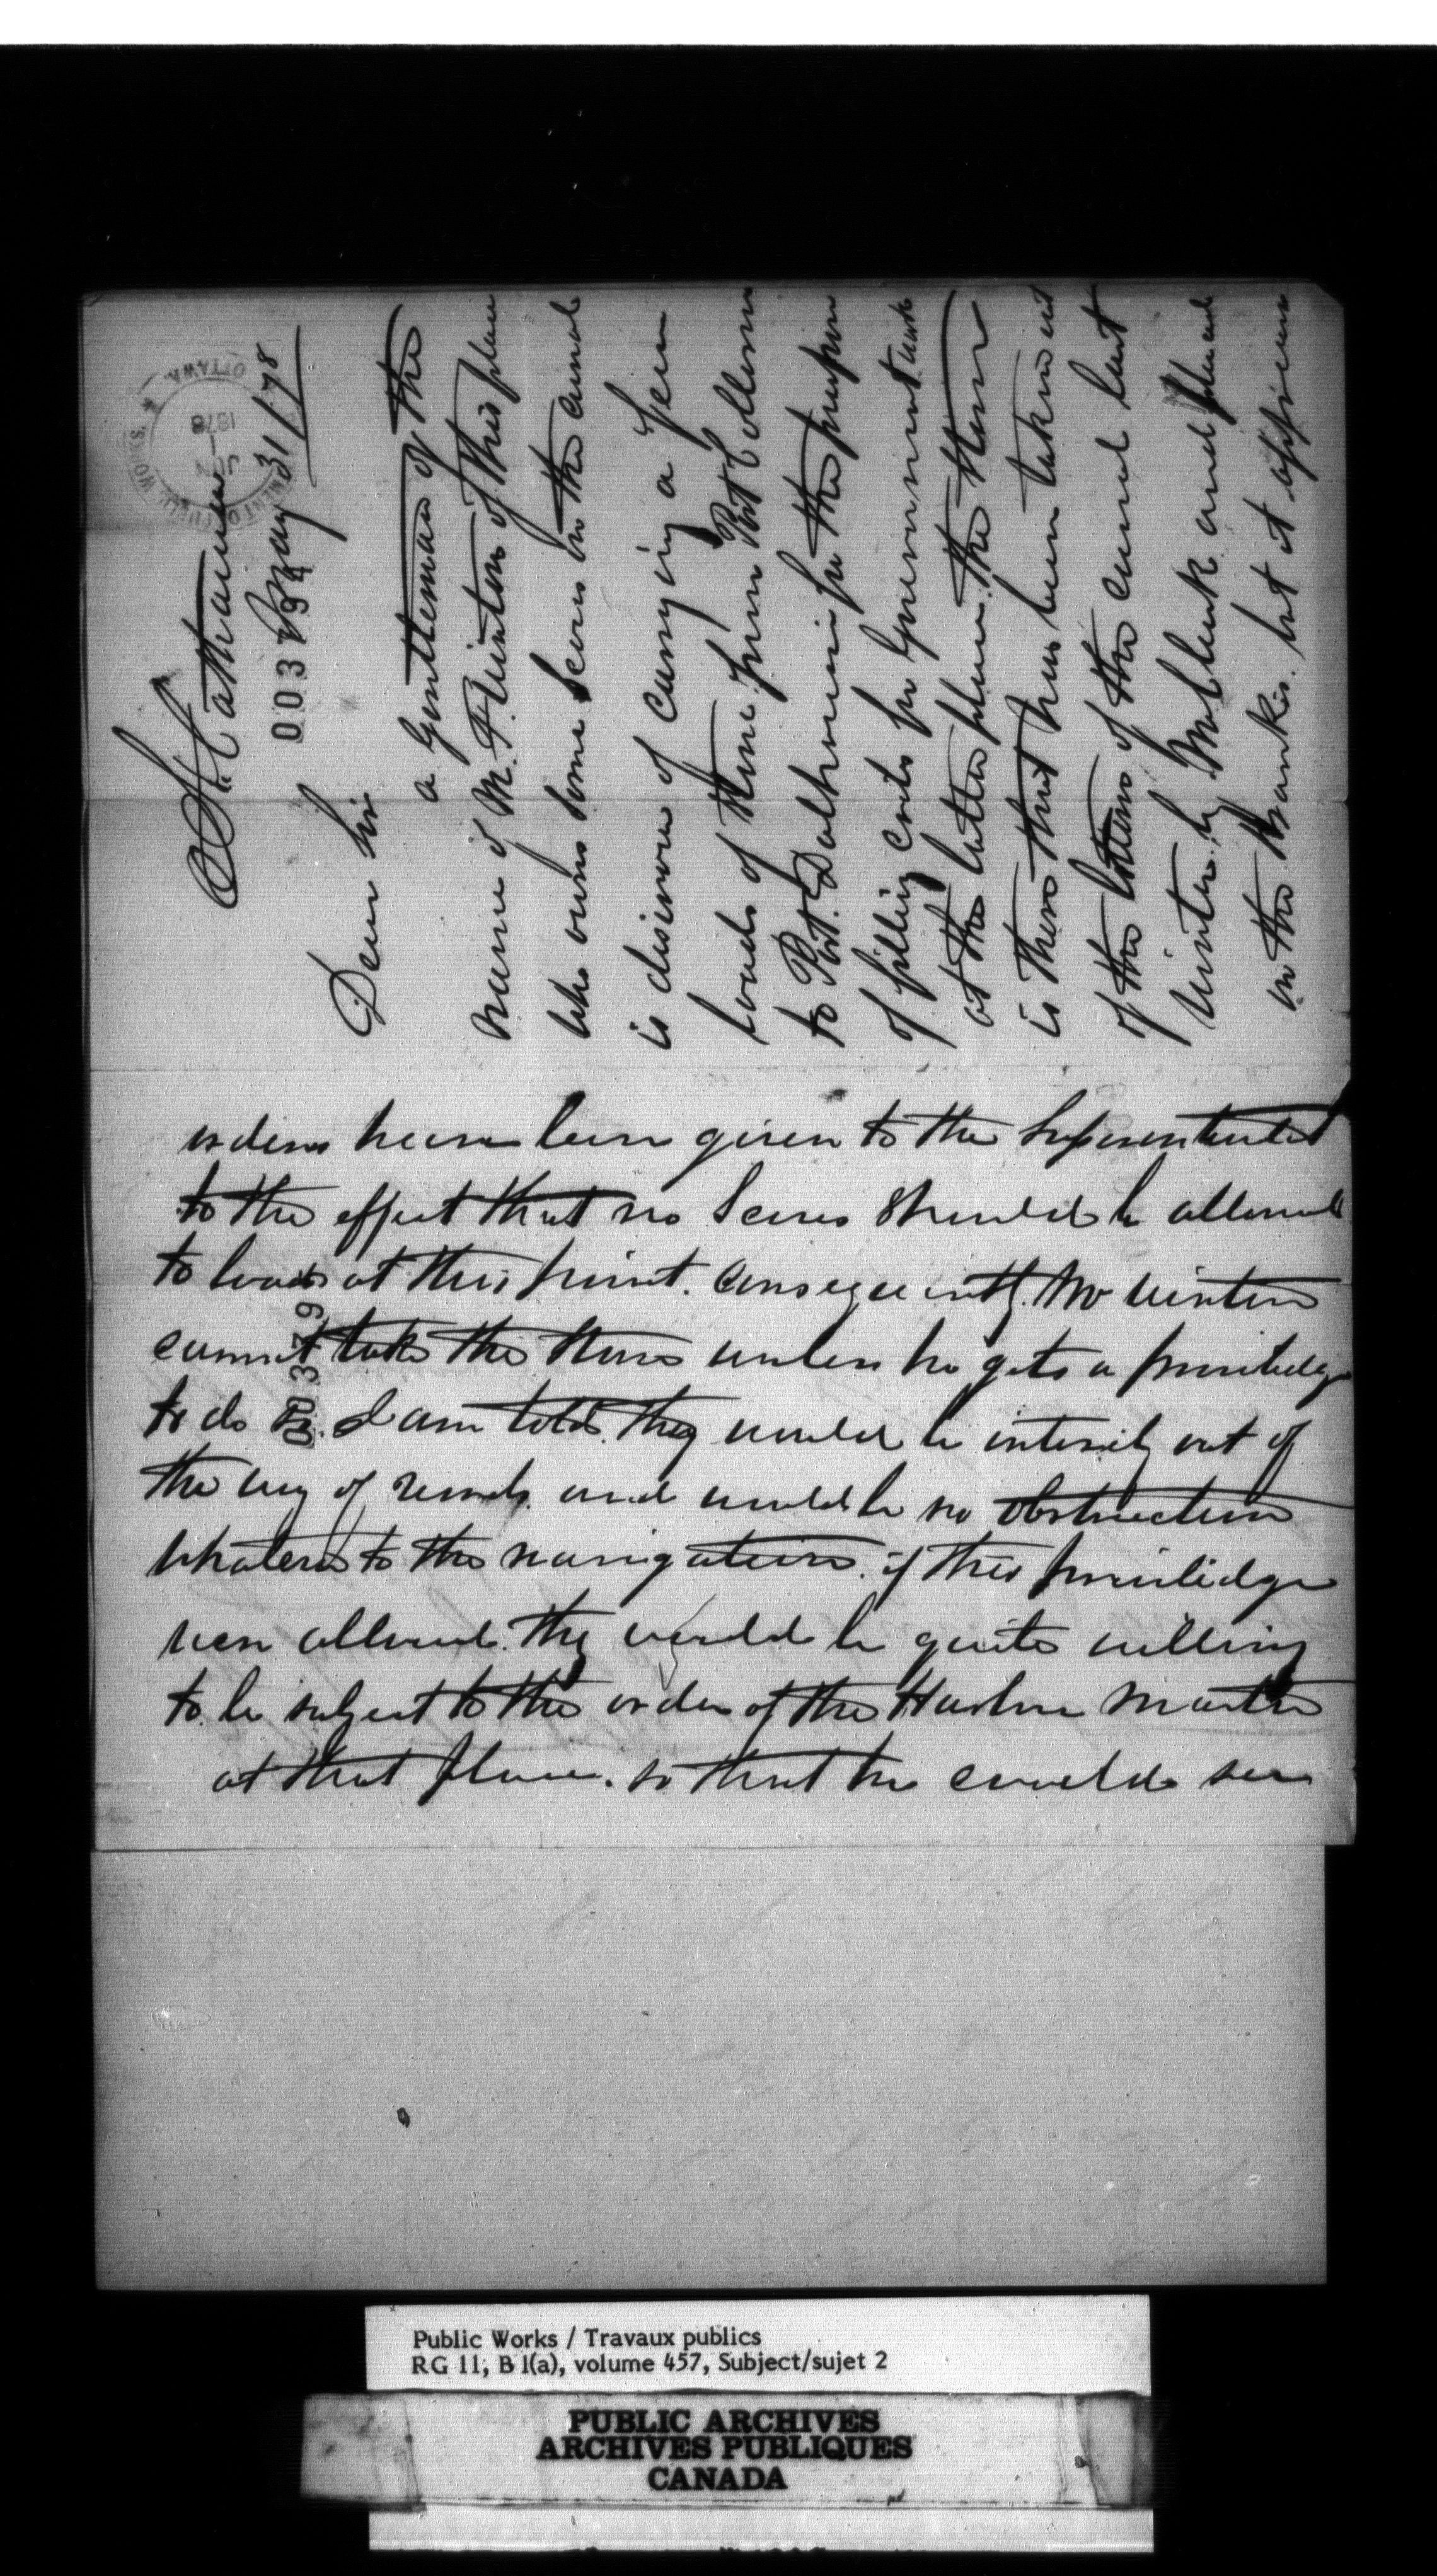 St Catharines
May 31/78
003799
DEPARTMENT OF PUBLIC WORKS. OTTAWA.
JUN 1 1878
Dear Sir
a gentleman of the
name of Mr. F. Winters of this place
who owns some Scows on the canal
is desirous of carrying a few
loads of stone from Port Colborne
to Port. Dalhousie for the purpose
of filling cribs for Government work
at the latter place. the stone
is there that has been taken out
of the bottom of the canal last
winter by and placed
on the banks. but it appears
orders have been given to the Superintendent
to the effect that no Scows should be allowed
to load at this point. Consequently Mr Winters
cannot take the stone unless he gets a priviledge
to do so. I am told. they would be intirely out of
the way of vessels. and would be no obstruction
whatever to the navigation. if this priviledge
were allowed. they would be quite willing
to be subject to the order of the Harbor Master
at that place. so that he could see
00379
Public Works / Travaux publics
RG 11, B 1(a), volume 457, Subject/sujet 2
PUBLIC ARCHIVES
ARCHIVES PUBLIQUES
CANADA